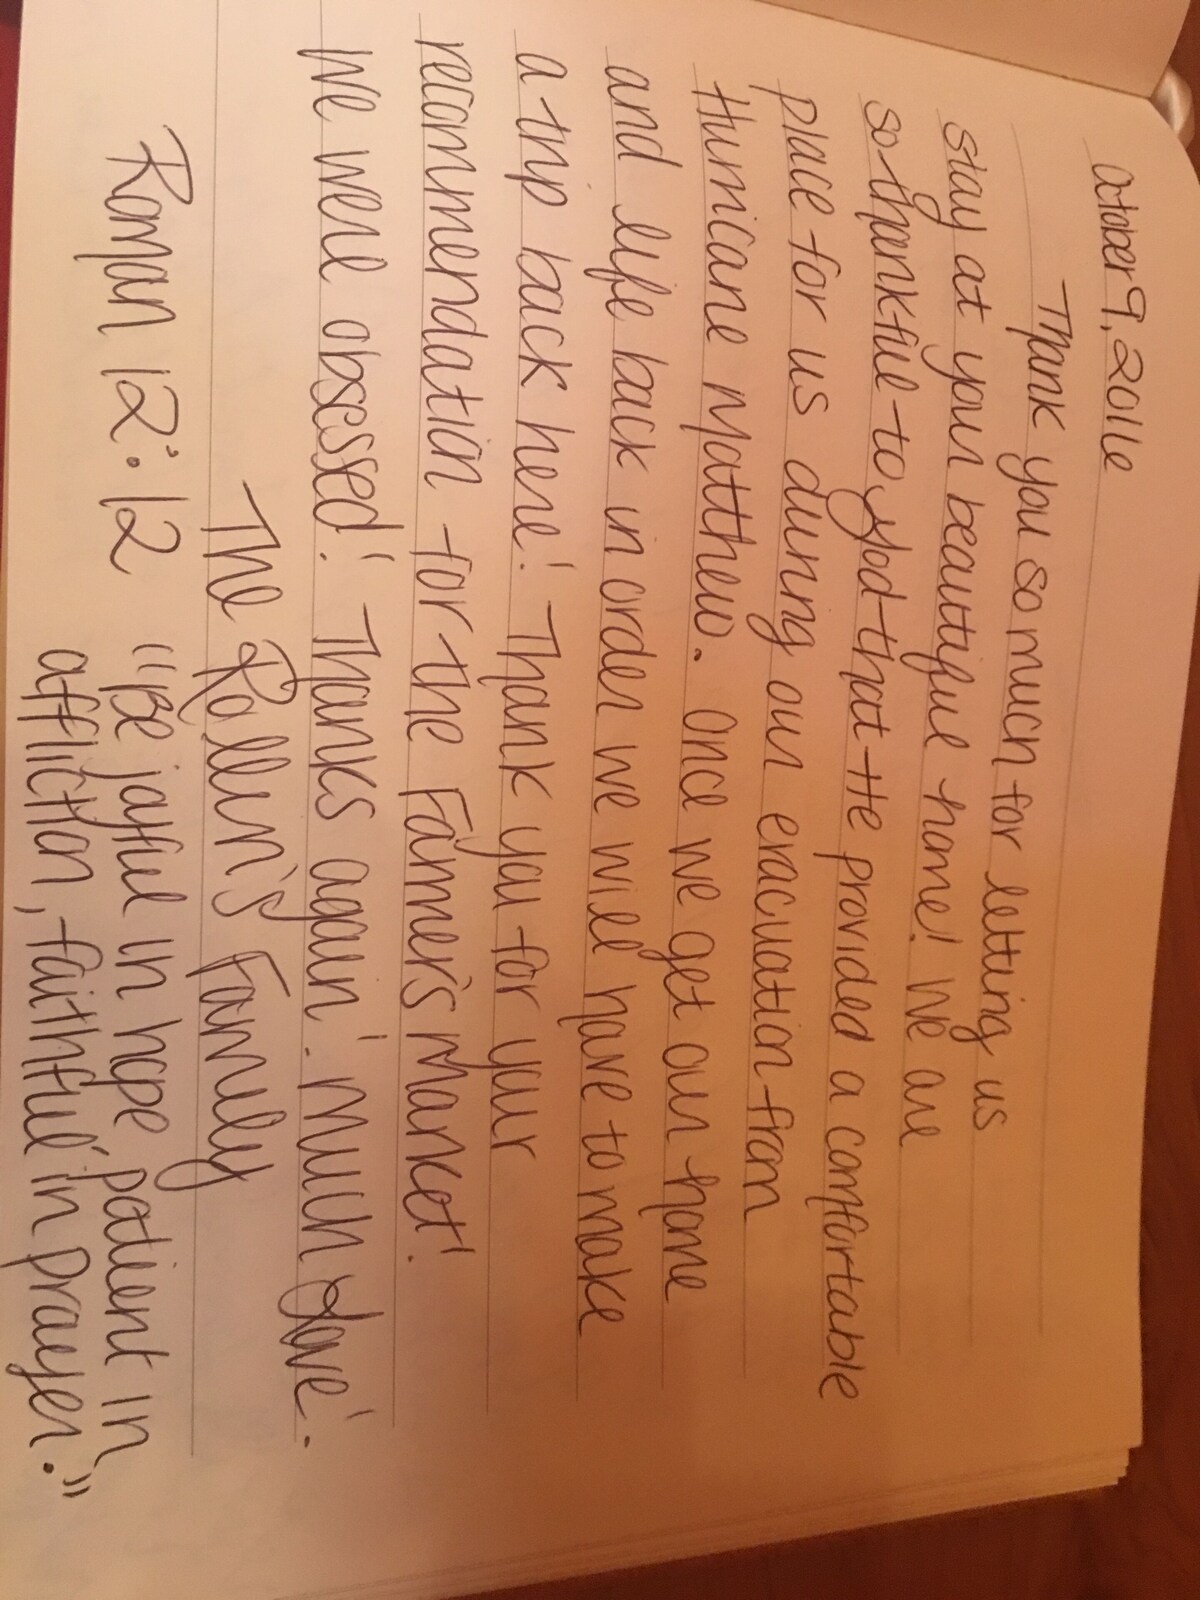 October 9, 2016
Thank you so much for letting us
stay at your beautiful home! We are
so thankful to God that He provided a comfortable
place for us during our evacuation from
Hurricane Matthew. Once we get our home
and life back in order we will have to make
a trip back here! Thank you for your
recommendation for the Famer's Market!
We were obsessed! Thanks again! Much Love!
The Rollin's Family
Roman 12:12 "Be joyful in hope patient in
affliction, faithful in prayer."